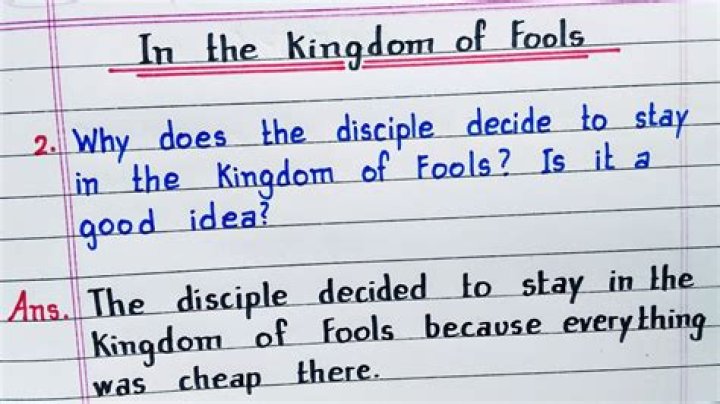 In the Kingdom of Fools
2. Why does the disciple decide to stay
in the Kingdom of Fools? Is it a
good idea?
Ans. The disciple decided to stay in the
Kingdom of Fools because everything
was cheap there.